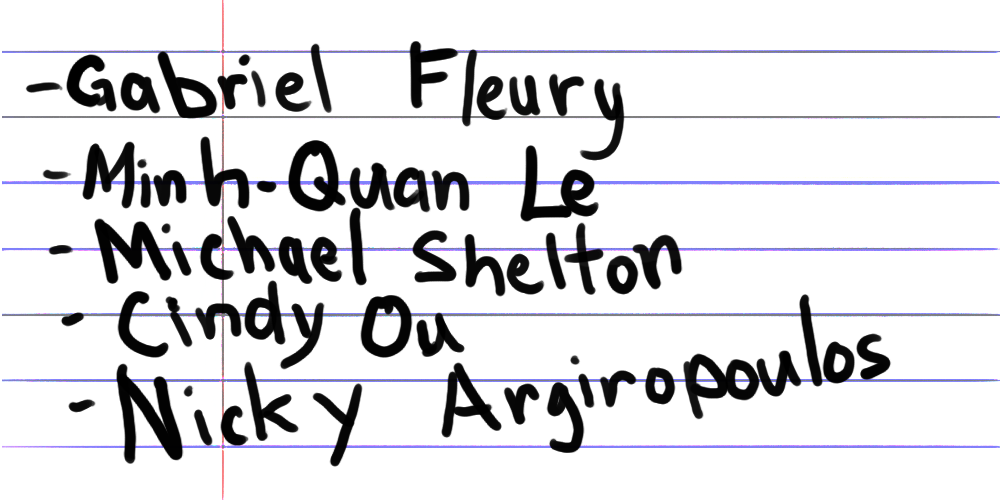 - Gabriel Fleury
- Minh-Quan Le
- Michael Shelton
- Cindy Ou
- Nicky Argiropoulos